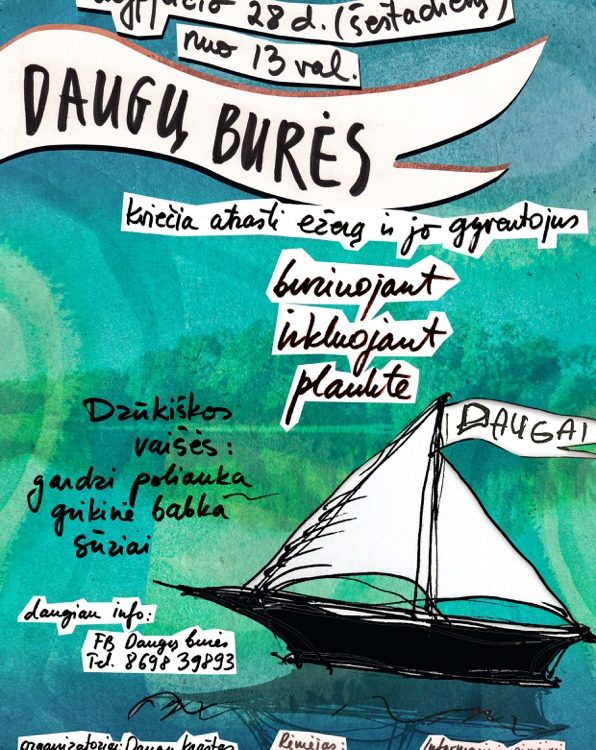 28 d. (šeštadienį)
nuo 13 val.
DAUGŲ BURĖS
kviečia atrasti ežerą ir jo gyventojus
buriuojant
irkluojant
plaukte
Dzūkiškos
vaišės:
gardzi polianka
grikinė babka
sūriai
DAUGAI
daugiau info:
FB Daugų burės
Tel. 8698 39893
organizatoriai: Daugų kraštas
Rėmėjas: